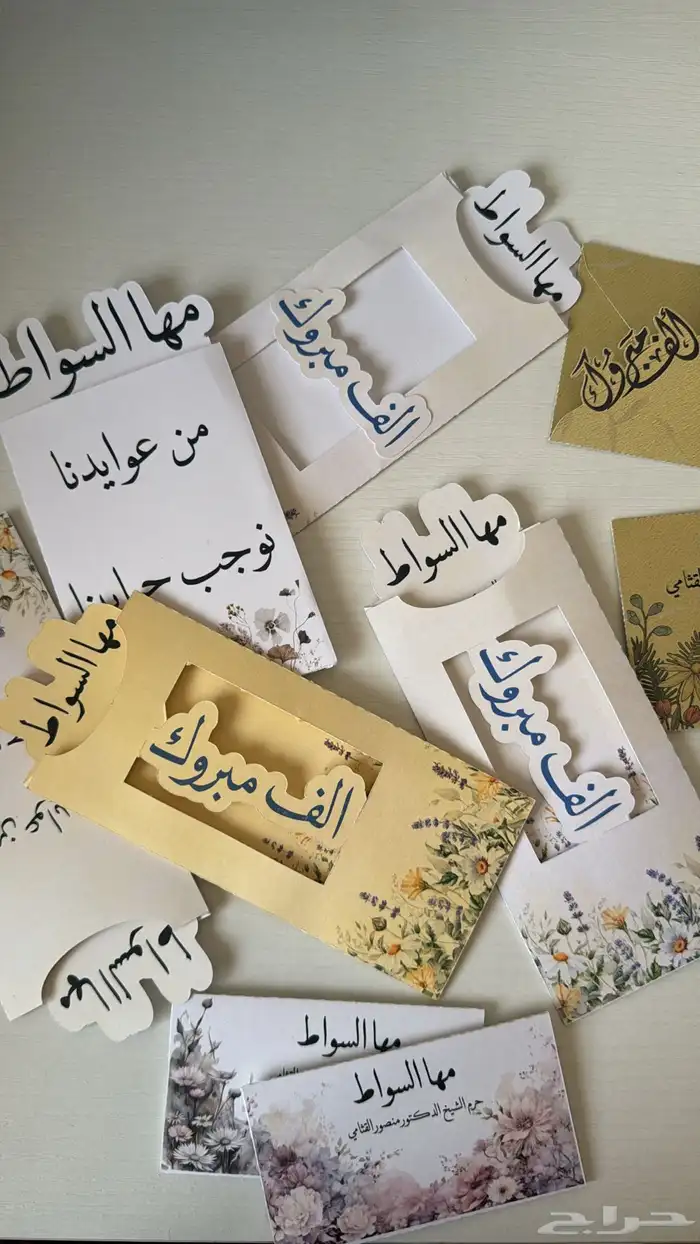 مها السواط
الف مبروك
الف مبروك
مها السواط
من عوايدنا
نوجب
مها السواط
الف مبروك
مها السواط
الف مبروك
القثامي
مها السواط
مها السواط
مها السواط
حرم الشيخ الدكتور منصور القثامي
حراج